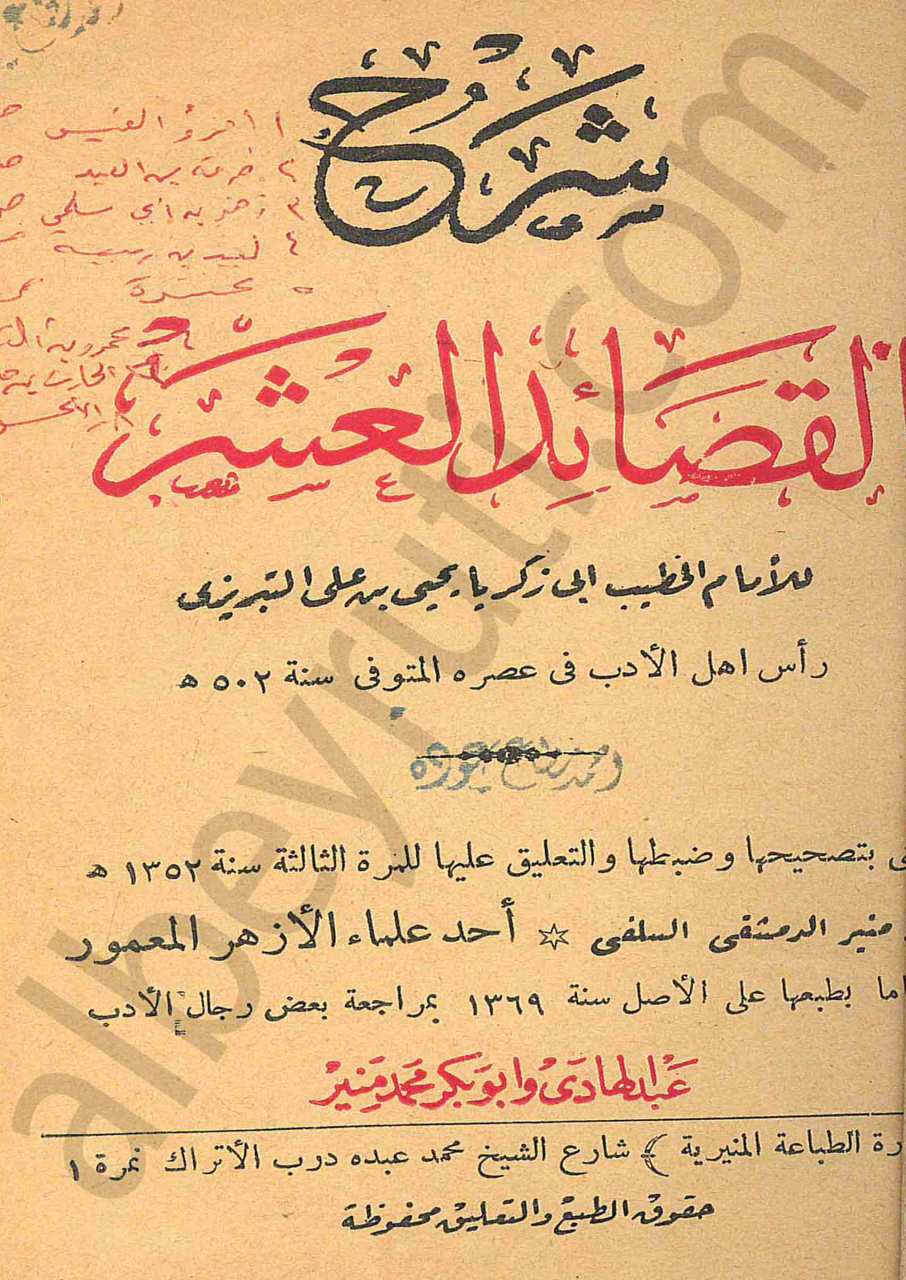 شرح
القصائد العشر
للأمام الخطيب ابى زكريا يحيى بن على التبريزى
رأس اهل الأدب فى عصره المتوفى سنة ٥٠٢ ه
بتصحيحها وضبطها والتعليق عليها للمرة الثالثة سنة ١٣٥٢ ه
منير الدمشقى السلفى ✡ أحد علماء الأزهر المعمور
اما بطبعها على الأصل سنة ١٣٦٩ بمراجعة بعض رجال الأدب
عبد الهادى وابو بكر محمد منير
رة الطباعة المنيرية ﴾ شارع الشيخ محمد عبده درب الأتراك نمرة ١
حقوق الطبع والتعليق محفوظة
١ امرؤ القيس
٢ طرفة بن العبد
٣ زهير بن أبي سلمى
٤ لبيد بن ربيعه
٥ عنترة
عمرو بن
الحارث بن
albeyruti.com